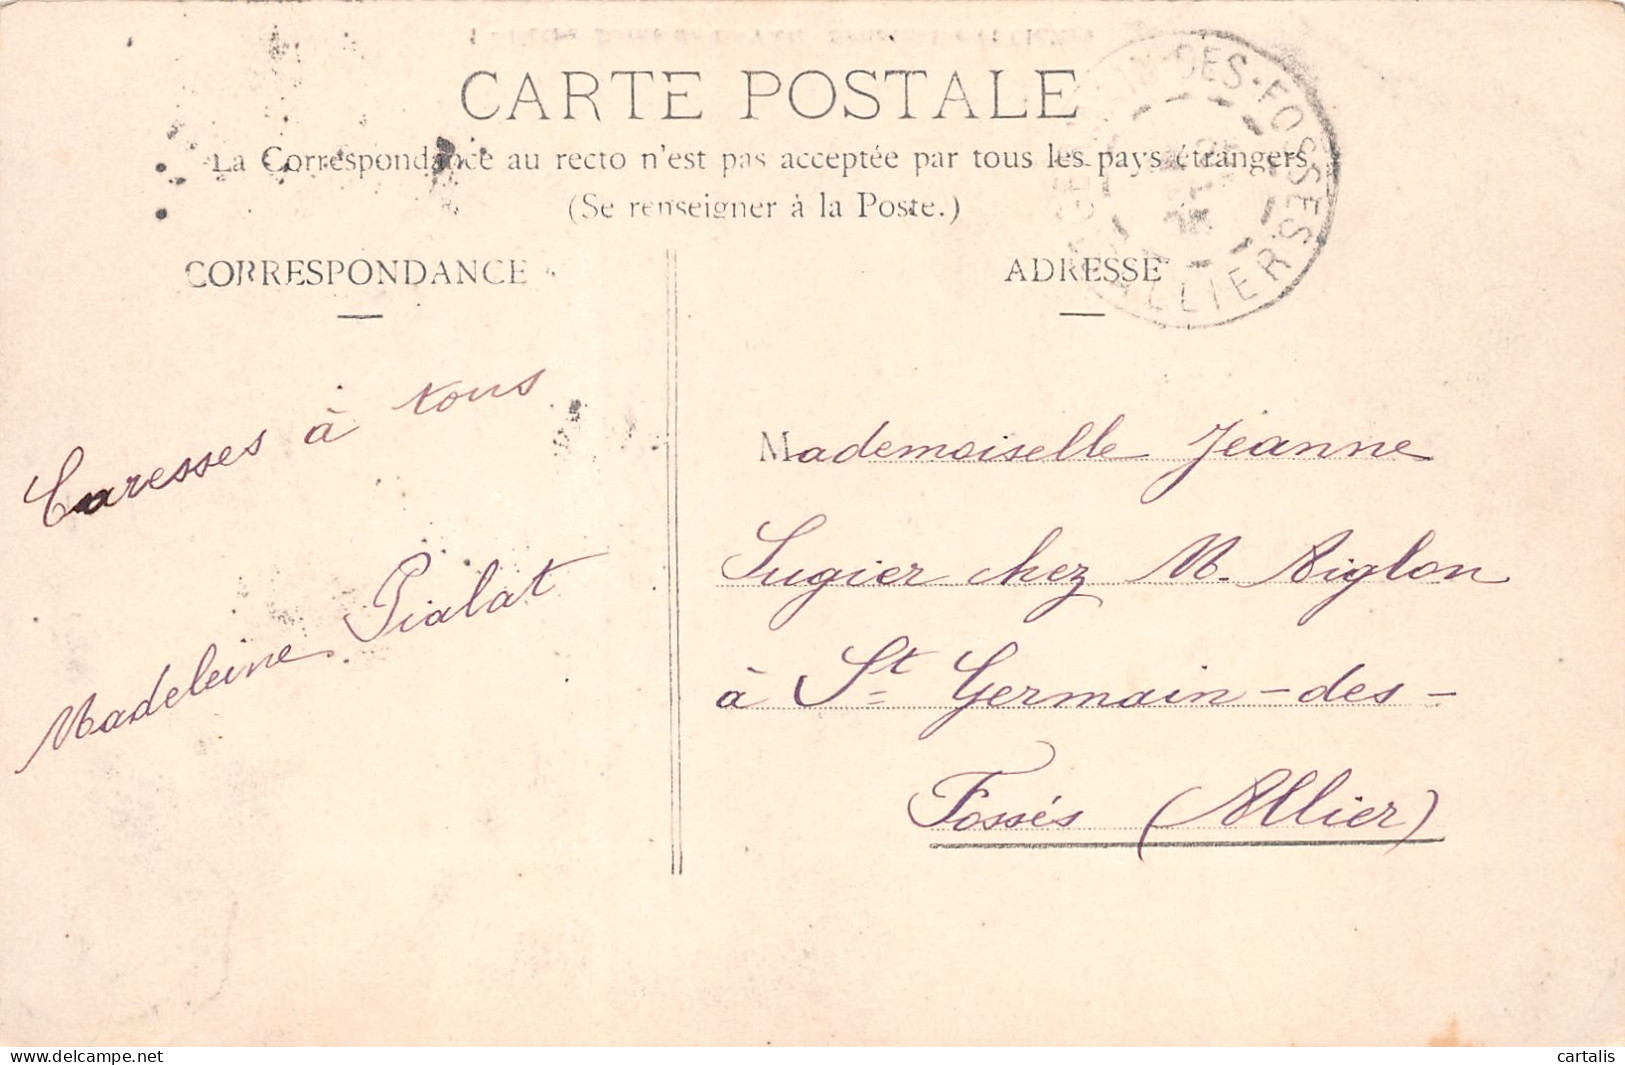 CARTE POSTALE
La Correspondance au recto n'est pas acceptée par tous les pays étrangers
(Se renseigner à la Poste.)
CORRESPONDANCE
Caresses à tous
Madeleine Pialat
ADRESSE
DES-FOSSÉS
ALLIER
Mademoiselle Jeanne
Sugier chez M. Aiglon
à St Germain-des-
Fossés (Allier)
delcampe.net
cartalis